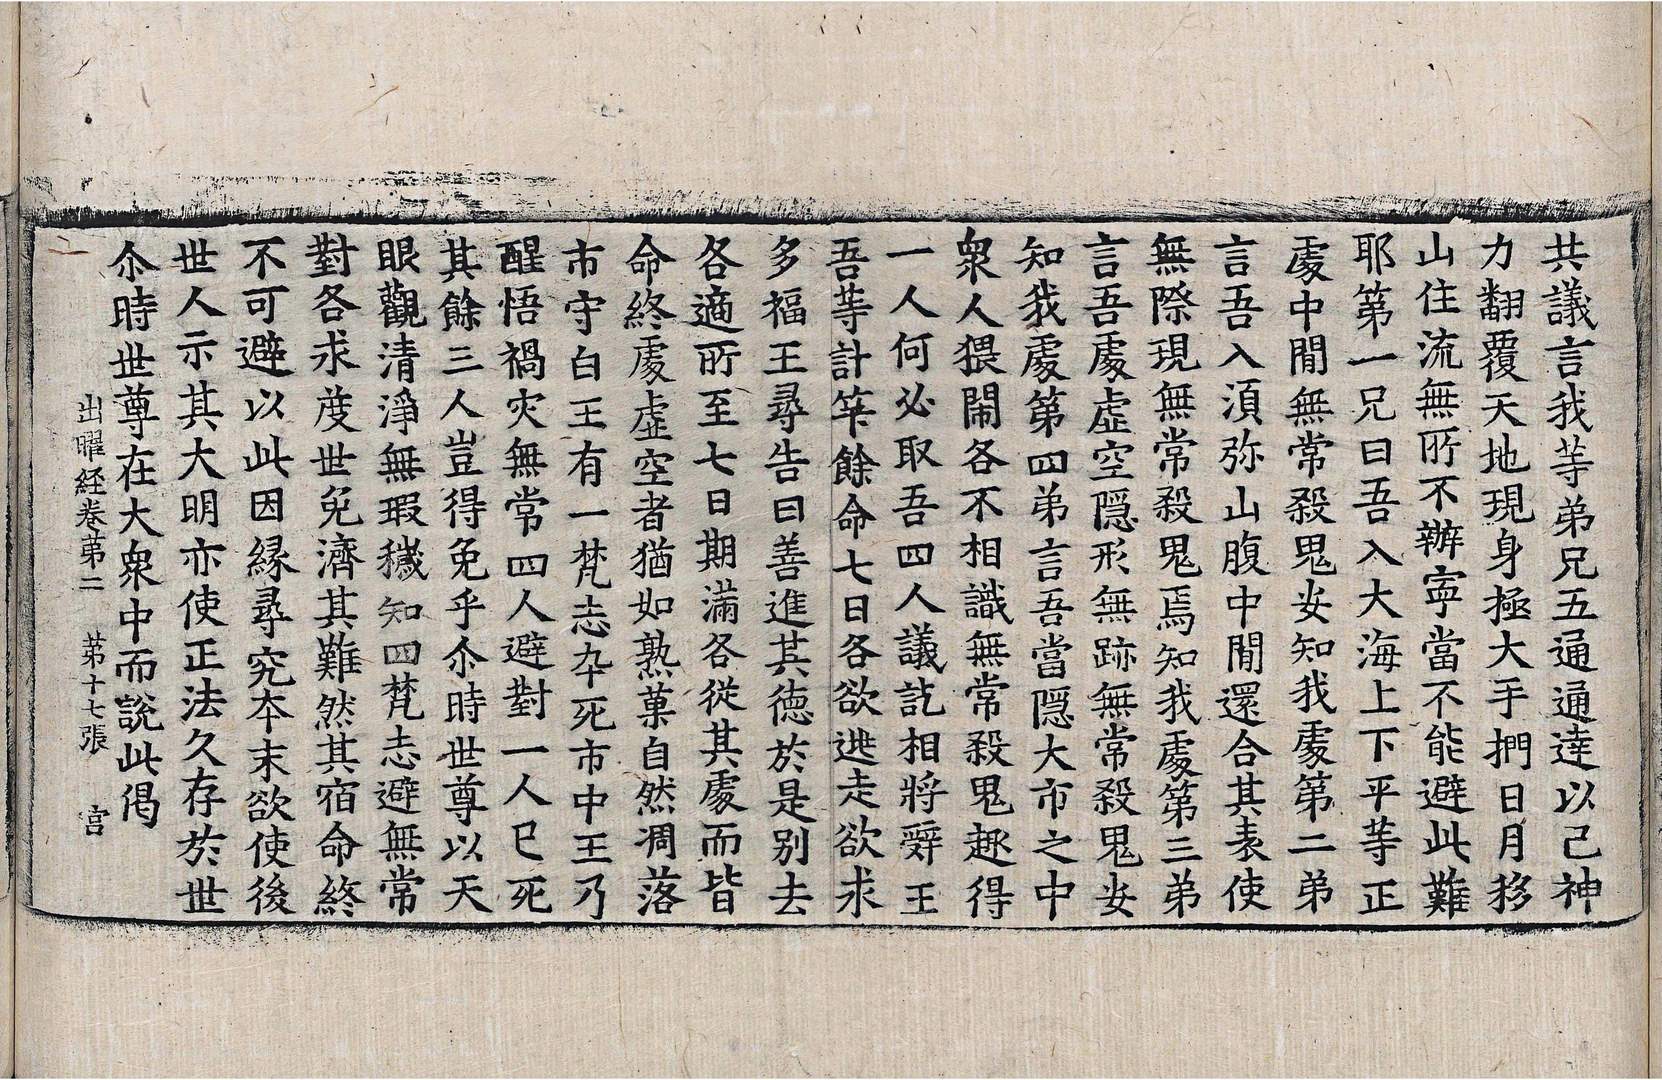 共議言我等弟兄五通通達以己神
力翻覆天地現身極大手捫日月移
山住流無所不辦寧當不能避此難
耶第一兄曰吾入大海上下平等正
處中閒無常殺鬼安知我處第二弟
言吾入須弥山腹中閒還合其表使
無際現無常殺鬼焉知我處第三弟
言吾處虛空隱形無跡無常殺鬼安
知我處第四弟言吾當隱大市之中
衆人猥閙各不相識無常殺鬼趣得
一人何必取吾四人議訖相將辝王
吾等計筭餘命七日各欲逃走欲求
多福王尋告曰善進其徳於是别去
各適所至七日期滿各從其處而皆
命終處虛空者猶如熟菓自然凋落
市守白王有一梵志卒死市中王乃
醒悟禍灾無常四人避對一人已死
其餘三人豈得免乎尒時世尊以天
眼觀清淨無瑕穢知四梵志避無常
對各求度世免濟其難然其宿命終
不可避以此因緣尋究本末欲使後
世人示其大明亦使正法久存於世
尒時世尊在大衆中而說此偈
出曜経卷第二 第十七張 宫